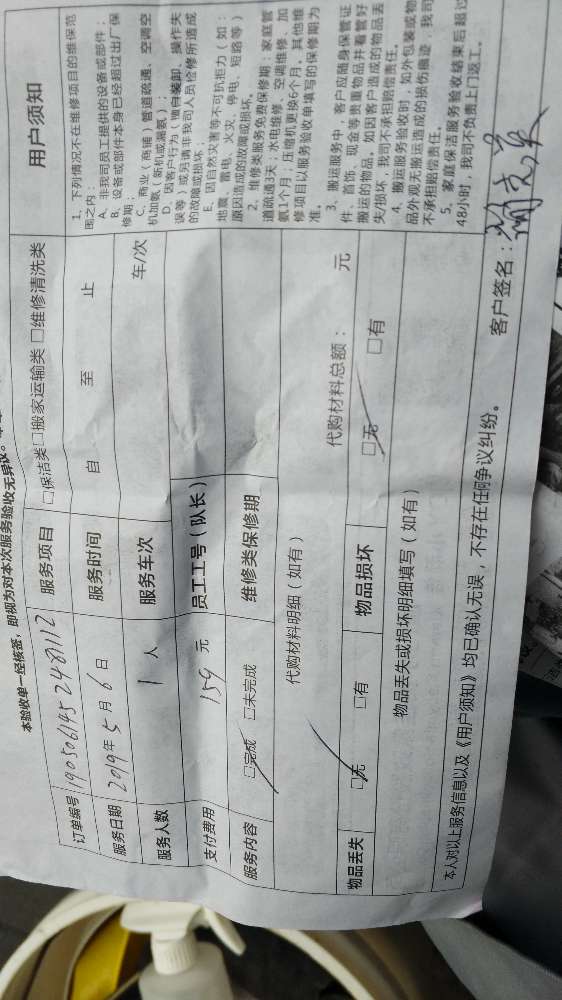 本验收单一经核签，即视为对本次服务验收无异议。
订单编号 190506195248112 服务项目 □保洁类□搬家运输类 □维修清洗类
服务日期 2019年5月6日 服务时间 自 至 止
服务人数 1 人 服务车次 车/次
支付费用 159 元 员工工号（队长）
服务内容 □完成 □未完成 维修类保修期
代购材料明细（如有） 代购材料总额： 元
物品丢失 □无 □有 物品损坏 □无 □有
物品丢失或损坏明细填写（如有）
用户须知
1、下列情况不在维修项目的维保范
围之内：
A、非我司员工提供的设备或部件；
B、设备或部件本身已经超过出厂保
修期；
C、商业（商铺）管道疏通、空调空
机加氨（新机或漏氨）；
D、因客户行为（擅自装卸、操作失
误等）或另请非我司人员检修所造成
的故障或损坏；
E、因自然灾害等不可抗拒力（如：
地震、蓄电、火灾、停电、短路等）
原因造成的故障或损坏。
2、维修类服务免费保修期：家庭管
道疏通3天；水电维修、空调维修、加
氨1个月；压缩机更换6个月。其他维
修项目以服务验收单填写的保修期为
准。
3、搬运服务中，客户应随身保管证
件、首饰、现金等贵重物品并看管好
搬运的物品，如因客户造成的物品丢
失/损坏，我司不承担赔偿责任。
4、搬运服务验收时，如外包装或物
品外观无搬运造成的损伤痕迹，我司
不承担赔偿责任。
5、家庭保洁服务验收结束后超过
48小时，我司不负责上门返工。
本人对以上服务信息以及《用户须知》均已确认无误，不存在任何争议纠纷。 客户签名：